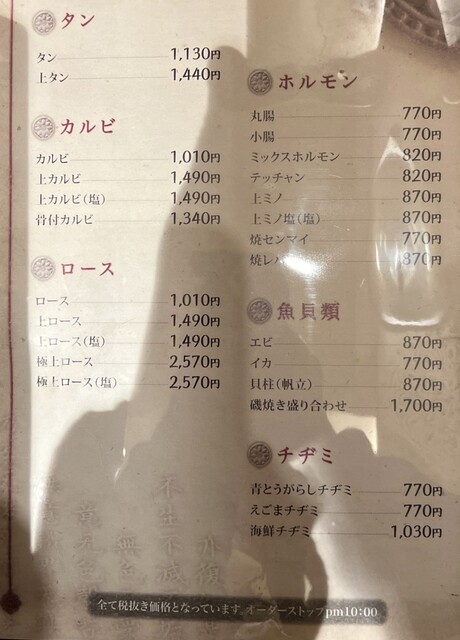 タン
タン 1,130円
上タン 1,440円
カルビ
カルビ 1,010円
上カルビ 1,490円
上カルビ(塩) 1,490円
骨付カルビ 1,340円
ロース
ロース 1,010円
上ロース 1,490円
上ロース(塩) 1,490円
極上ロース 2,570円
極上ロース(塩) 2,570円
ホルモン
丸腸 770円
小腸 770円
ミックスホルモン 820円
テッチャン 820円
上ミノ 870円
上ミノ塩(塩) 870円
焼センマイ 770円
焼レバー 870円
魚貝類
エビ 870円
イカ 770円
貝柱(帆立) 870円
磯焼き盛り合わせ 1,700円
チヂミ
青とうがらしチヂミ 770円
えごまチヂミ 770円
海鮮チヂミ 1,030円
不生不減
亦復
無色
全て税抜き価格となっています オーダーストップpm10:00